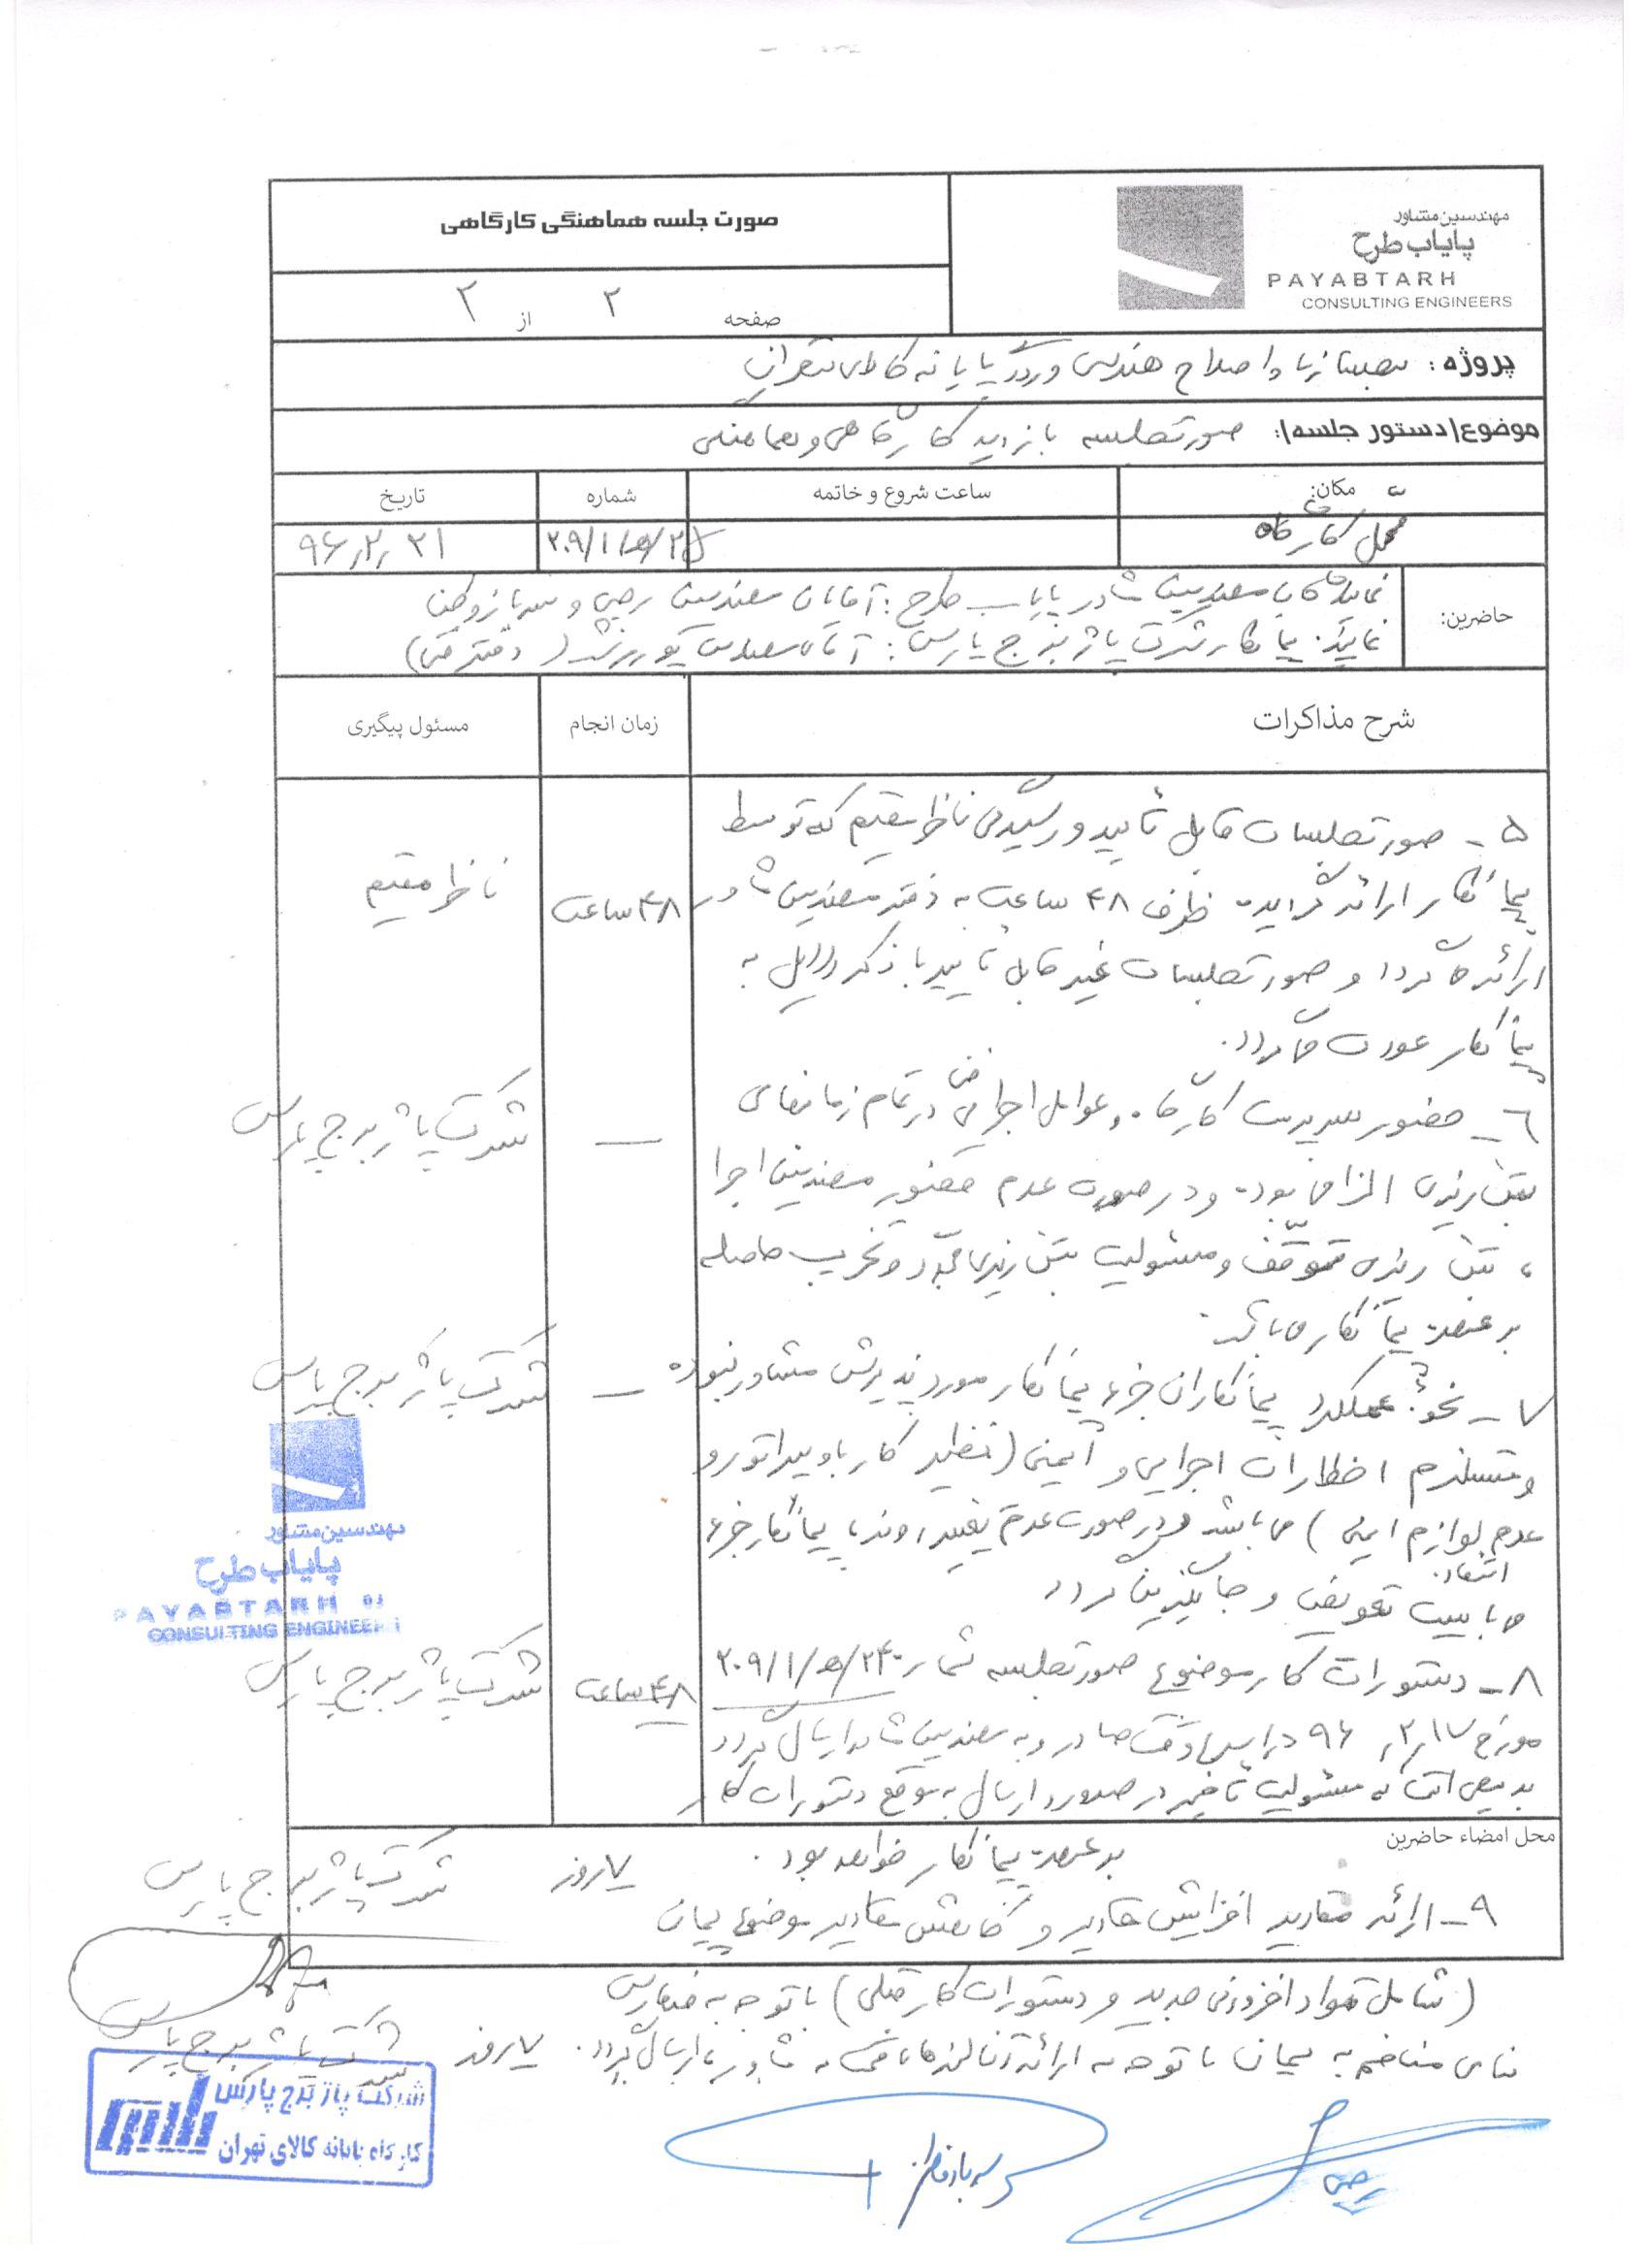 مهندسین مشاور
پایاب طرح
PAYABTARH
CONSULTING ENGINEERS
صورت جلسه هماهنگی کارگاهی
صفحه ۲ از ۲
پروژه: بهسازی و اصلاح هندسی ورودی پایانه کالای تهران
موضوع(دستور جلسه): صورتجلسه بازدید کارگاهی و هماهنگی
مکان: ساعت شروع و خاتمه شماره تاریخ
محل کارگاه ۲۰۹/۱/ه/۲۵ ۹۶/۲/۲۱
حاضرین:
نمایندگان مهندسین مشاور پایاب طرح: آقایان مهندسین رجبی و سربازوطن
نماینده پیمانکار شرکت پاژ برج پارس: آقای مهندس (دفتر فنی)
شرح مذاکرات زمان انجام مسئول پیگیری
۵- صورتجلسات قابل تأیید و رسیدگی ناظر مقیم که توسط
پیمانکار ارائه گردید. ظرف ۴۸ ساعت به دفتر مهندسین مشاور ۴۸ ساعت ناظر مقیم
ارائه می گردد و صورتجلسات غیر قابل تایید با ذکر دلایل به
پیمانکار عودت می گردد.
۶- حضور سرپرست کارگاه و عوامل اجرایی فنی در تمام زمانهای — شرکت پاژ برج پارس
بتن ریزی الزامی بوده و در صورت عدم حضور مهندسین اجرا
، بتن ریزی متوقف و مسئولیت بتن ریزی مجدد و تخریب حاصله
بر عهده پیمانکار می باشد.
۷- نحوه عملکرد پیمانکاران جزء پیمانکار مورد پذیرش مشاور نبوده — شرکت پاژ برج پارس
و مستلزم اخطارات اجرایی و ایمنی (نظیر کار با ویبراتور و
عدم لوازم ایمنی) می باشد و در صورت عدم تغییر روند، پیمانکار جزء
می بایست تعویض و جایگزین گردد
مهندسین مشاور
پایاب طرح
PAYABTARH
CONSULTING ENGINEERS
۸- دستورات کار موضوع صورتجلسه شماره ۲۰۹/۱/ه/۲۴ ۴۸ ساعت شرکت پاژ برج پارس
مورخ ۹۶/۲/۱۷ در اسرع وقت صادر و به مهندسین مشاور ارسال گردد
بدیهی است که مسئولیت تأخیر در صدور و ارسال به موقع دستورات کار
محل امضاء حاضرین
بر عهده پیمانکار خواهد بود.
۹- ارائه مقادیر افزایش مقادیر و کاهش مقادیر موضوع پیمان ۷ روز شرکت پاژ برج پارس
(شامل مواد افزودنی جدید و دستورات کار قبلی) با توجه به
منضم به پیمان با توجه به ارائه آنالیزهای به مشاور ارسال گردد. ۷ روز شرکت پاژ برج پارس
شرکت پاژ برج پارس
کارگاه پایانه کالای تهران
رجبی